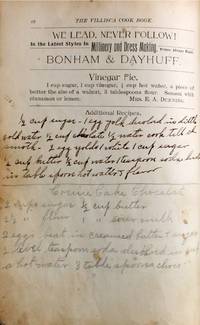 THE VILLISCA COOK BOOK.
WE LEAD, NEVER FOLLOW!
In the Latest Styles in Millinery and Dress Making.
BONHAM & DAYHUFF.
Vinegar Pie.
1 cup sugar, 1 cup vinegar, ½ cup hot water, a piece of
butter the size of a walnut, 3 tablespoons flour. Season with
cinnamon or lemon.
MRS. E. A.
Additional Recipes.
½ cup sugar 1 egg yolk disolved in little
cold water ½ cup water cook till
smooth. 2 egg yolks 1 cup sugar
½ cup butter ½ cup water teaspoon soda
in table spoon hot water flavor
Cake
2 cups sugar ½ cup butter
2½ " flour " sour milk
2 eggs beat in creamed butter & sugar
level teaspoon soda disolved in
hot water 3 table spoons